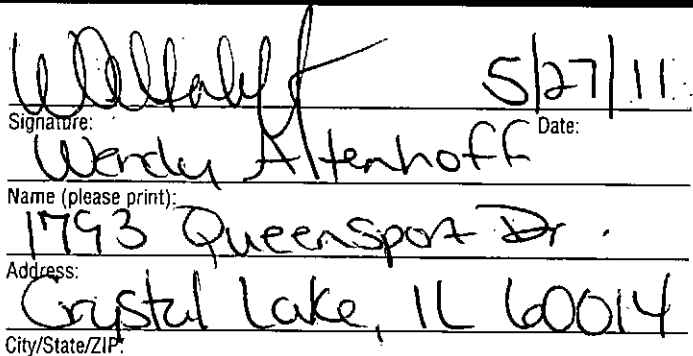 5/27/11
Signature: Date:
Wendy Altenhoff
Name (please print):
1793 Queensport Dr.
Address:
Crystal Lake, IL 60014
City/State/ZIP: